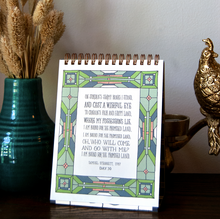 ON JORDAN'S STORMY BANKS I STAND,
AND CAST A WISHFUL EYE
TO CANAAN'S FAIR AND HAPPY LAND,
WHERE MY POSSESSIONS LIE
I AM BOUND FOR THE PROMISED LAND,
I AM BOUND FOR THE PROMISED LAND
OH, WHO WILL COME
AND GO WITH ME?
I AM BOUND FOR THE PROMISED LAND.
SAMUEL STENNETT, 1787